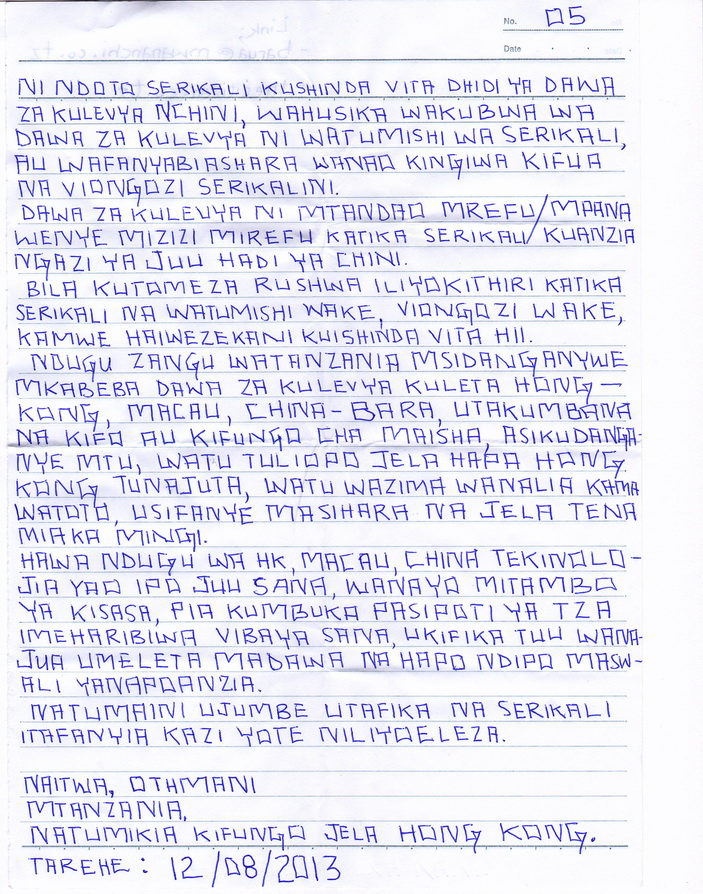 No. 05
Date . . .
NI NDOTO SERIKALI KUSHINDA VITA DHIDI YA DAWA
ZA KULEVYA NCHINI, WAHUSIKA WAKUBWA WA
DAWA ZA KULEVYA NI WATUMISHI WA SERIKALI,
AU WAFANYABIASHARA WANAO KINGIWA KIFUA
NA VIONGOZI SERIKALINI.
DAWA ZA KULEVYA NI MTANDAO MREFU/MPANA
WENYE MIZIZI MIREFU KATIKA SERIKALI/KUANZIA
NGAZI YA JUU HADI YA CHINI.
BILA KUTOMEZA RUSHWA ILIYOKITHIRI KATIKA
SERIKALI NA WATUMISHI WAKE, VIONGOZI WAKE,
KAMWE HAIWEZEKANI KUISHINDA VITA HII.
NDUGU ZANGU WATANZANIA MSIDANGANYWE
MKABEBA DAWA ZA KULEVYA KULETA HONG-
KONG, MACAU, CHINA-BARA, UTAKUMBANA
NA KIFO AU KIFUNGO CHA MAISHA, ASIKUDANGA-
NYE MTU, WATU TULIOPO JELA HAPA HONG
KONG TUNAJUTA, WATU WAZIMA WANALIA KAMA
WATOTO, USIFANYE MASIHARA NA JELA TENA
MIAKA MINGI.
HAWA NDUGU WA HK, MACAU, CHINA TEKINOLO-
JIA YAO IPO JUU SANA, WANAYO MITAMBO
YA KISASA, PIA KUMBUKA PASIPOTI YA TZA
IMEHARIBIWA VIBAYA SANA, UKIFIKA TUU WANA-
JUA UMELETA MADAWA NA HAPO NDIPO MASW-
ALI YANAPOANZIA.
NATUMAINI UJUMBE UTAFIKA NA SERIKALI
ITAFANYIA KAZI YOTE NILIYOELEZA.
NAITWA, OTHMANI
MTANZANIA,
NATUMIKIA KIFUNGO JELA HONG KONG.
TAREHE : 12/08/2013